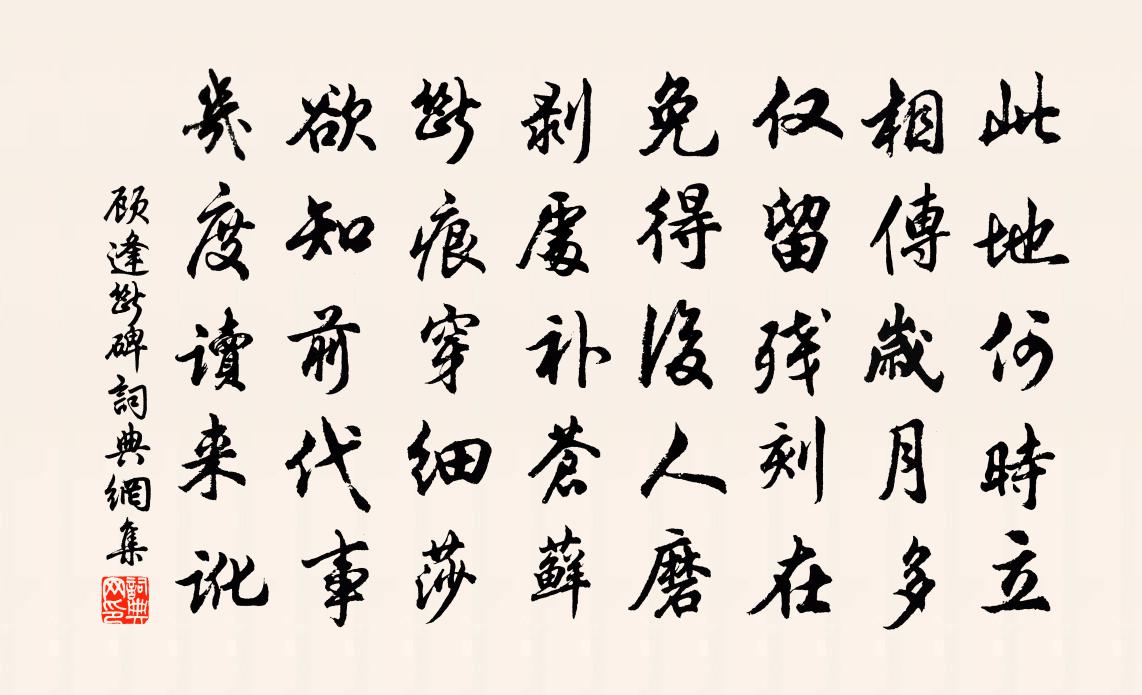 此地何時立
相傳歲月多
仅留残刻在
免得後人磨
剥處补蒼蘚
斷痕穿细莎
欲知前代事
幾度讀来訛
顾逢斷碑詞典網集
詞典网印